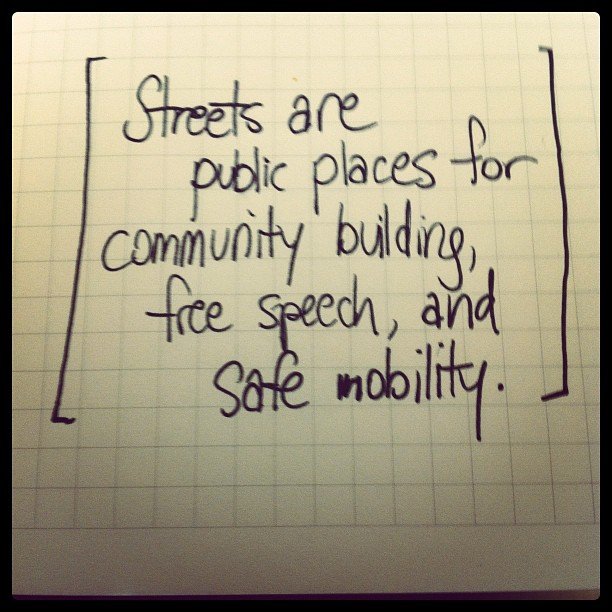 Streets are
public places for
community building,
free speech, and
safe mobility.